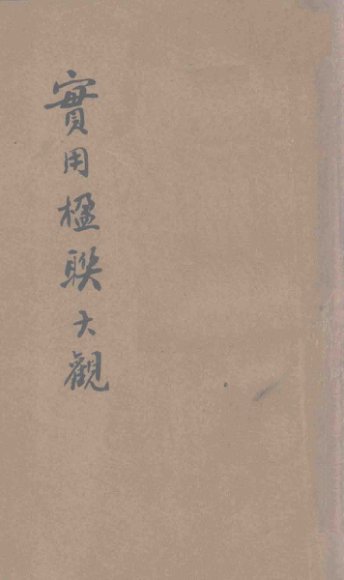 實用楹聯大觀